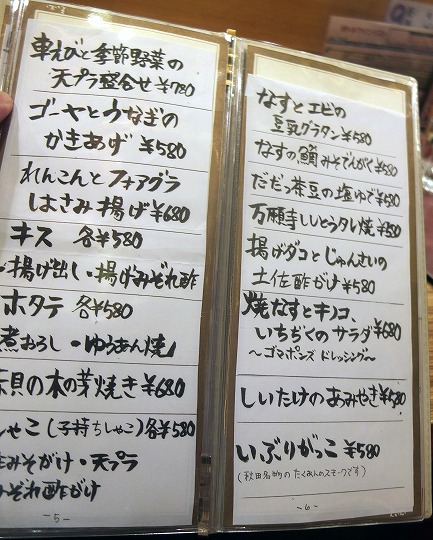 車えびと季節野菜の
天プラ盛合せ ¥780
ゴーヤとうなぎの
かきあげ ¥580
れんこんとフォアグラ
はさみ揚げ ¥680
キス 各¥580
・揚げ出し・揚げみぞれ酢
ホタテ 各¥580
煮おろし・ゆうあん焼
貝の木の芽焼き ¥680
しゃこ(子持ちしゃこ)各¥580
みそがけ・天プラ
みぞれ酢がけ
-5-
なすとエビの
豆乳グラタン ¥580
なすの鯛みそでんがく ¥580
だだっ茶豆の塩ゆで ¥580
万願寺しいとうタレ焼 ¥580
揚げダコとじゅんさいの
土佐酢がけ ¥580
焼なすとキノコ、
いちぢくのサラダ ¥680
〜ゴマポンズドレッシング〜
しいたけのあみやき ¥480
いぶりがっこ ¥580
(秋田名物のたくあんのスモークです)
-6-